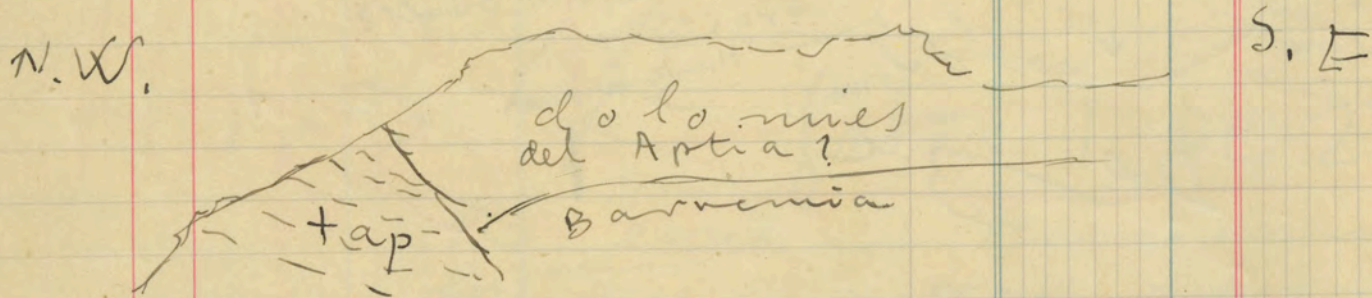 N.W.
S. E
dolomies
del Aptia?
Barremia
tap